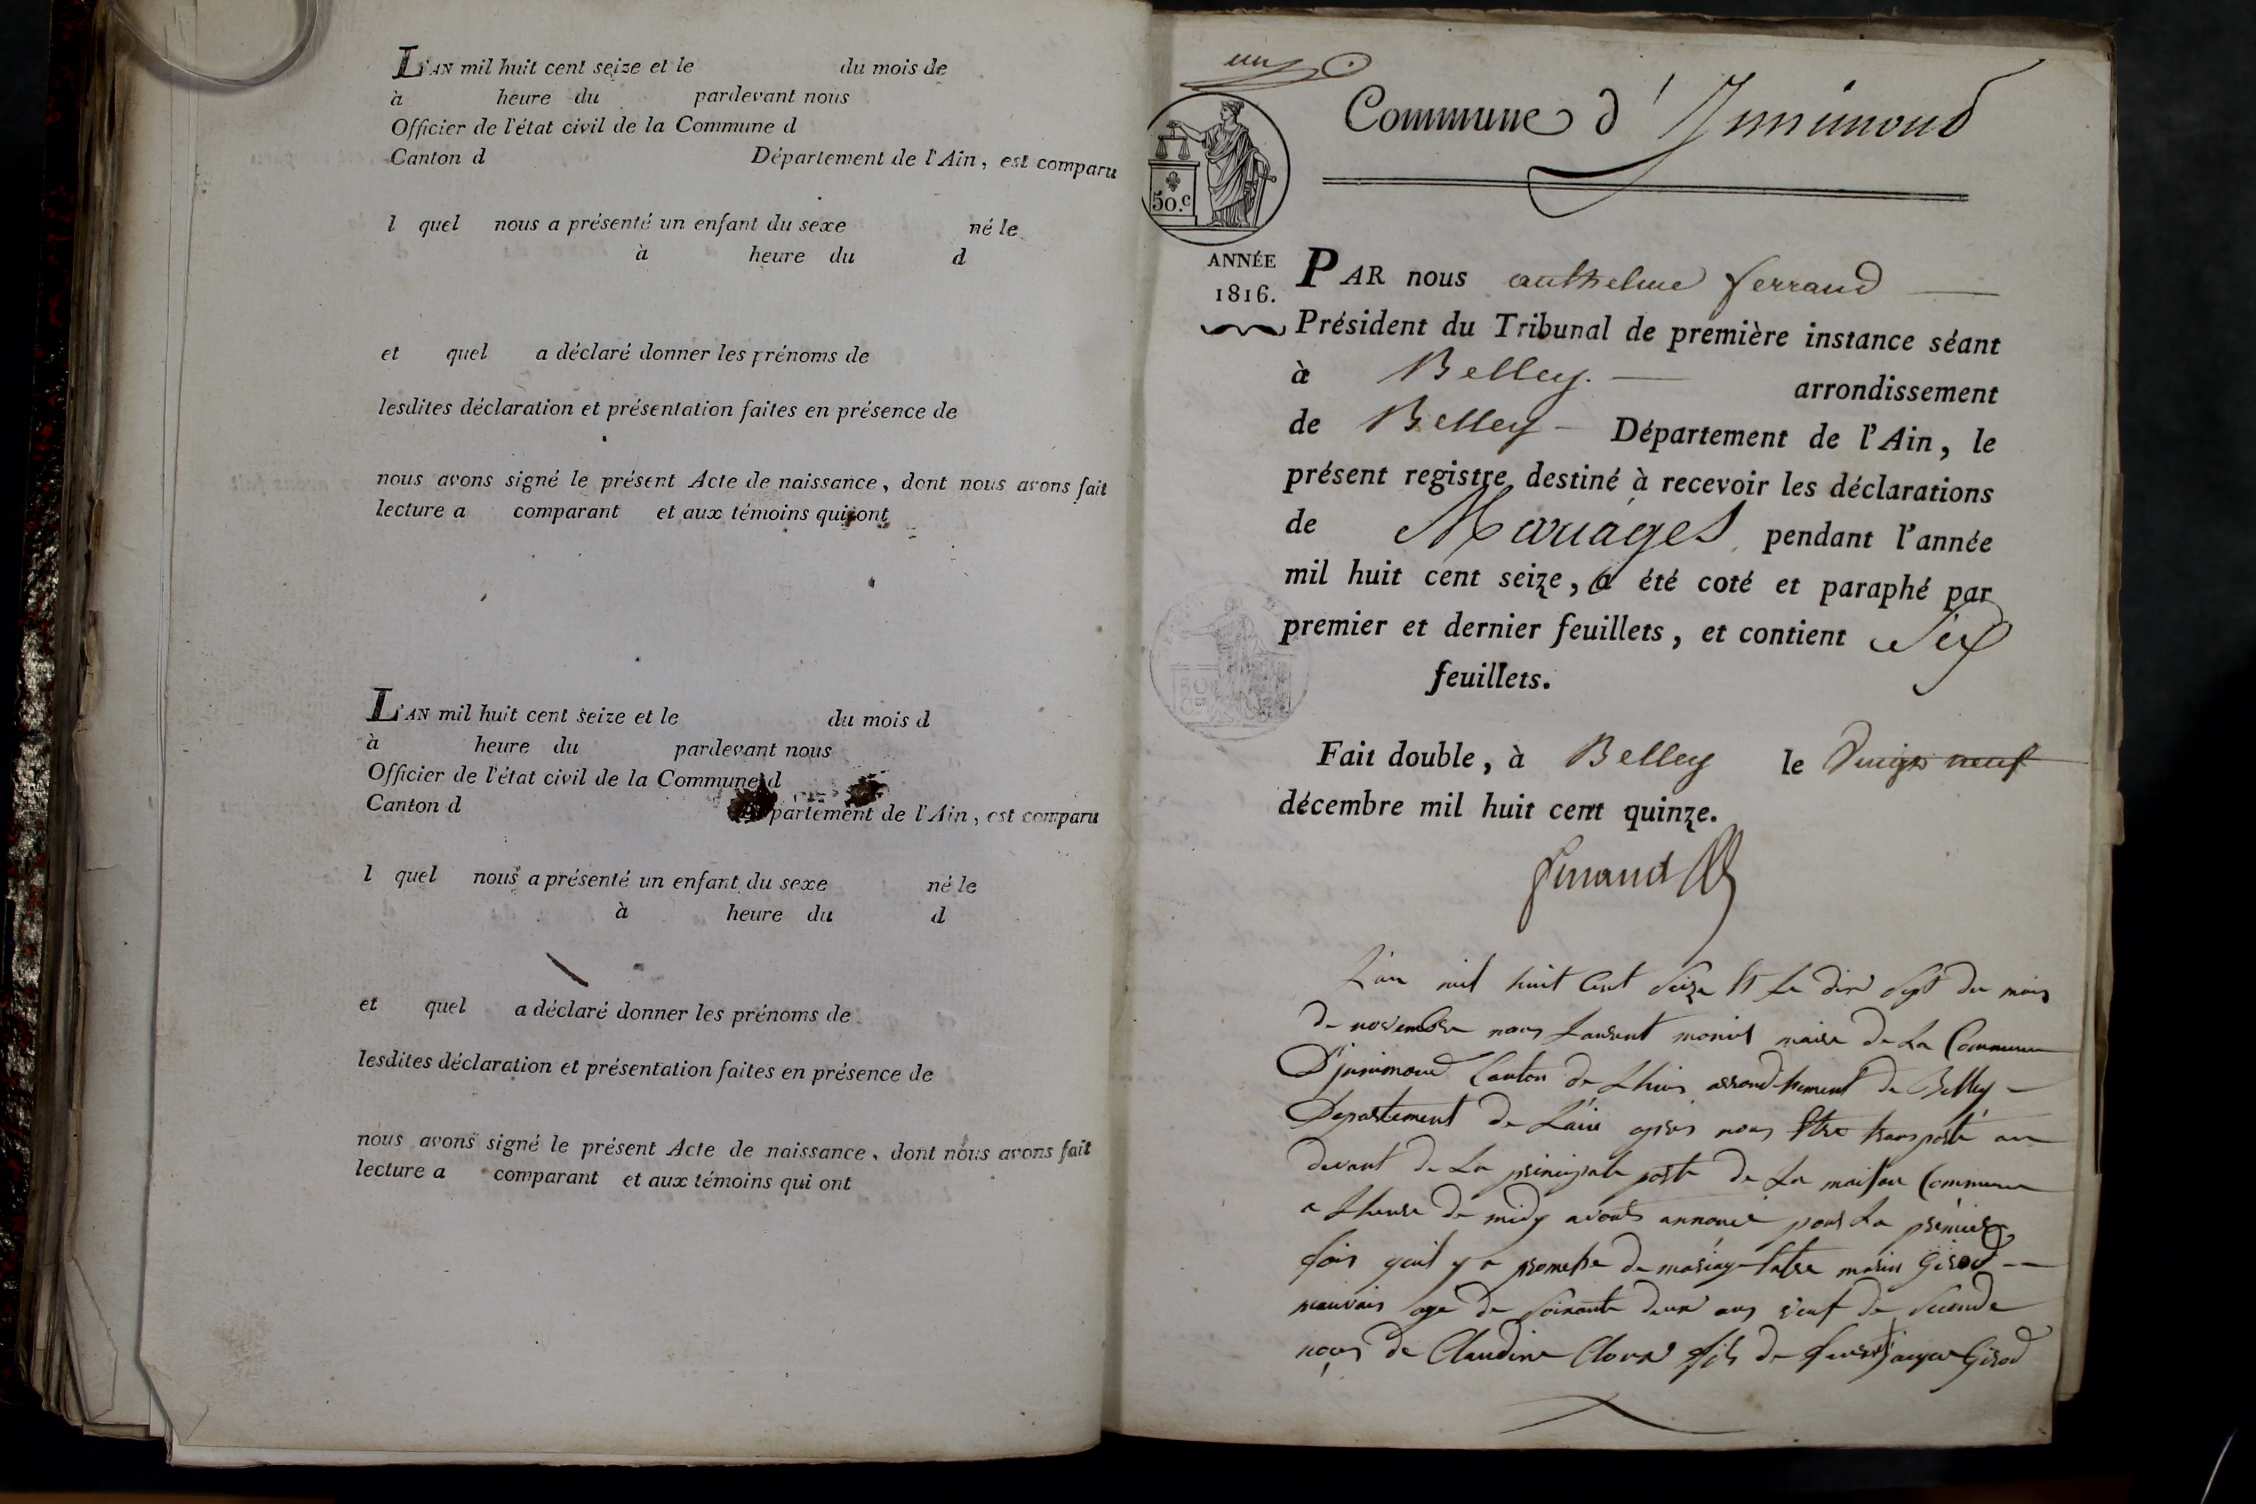 L'AN mil huit cent seize et le du mois de
à heure du pardevant nous
Officier de l'état civil de la Commune d
Canton d Département de l'Ain, est comparu
l quel nous a présenté un enfant du sexe né le
à heure du d
et quel a déclaré donner les prénoms de
lesdites déclaration et présentation faites en présence de
nous avons signé le présent Acte de naissance, dont nous avons fait
lecture a comparant et aux témoins qui ont
L'AN mil huit cent seize et le du mois d
à heure du pardevant nous
Officier de l'état civil de la Commune d
Canton d partement de l'Ain, est comparu
l quel nous a présenté un enfant du sexe né le
à heure du d
et quel a déclaré donner les prénoms de
lesdites déclaration et présentation faites en présence de
nous avons signé le présent Acte de naissance, dont nous avons fait
lecture a comparant et aux témoins qui ont
un
Commune d'Injimoud
50.c
ANNÉE
1816.
PAR nous anthelme ferrand
Président du Tribunal de première instance séant
à Belley. arrondissement
de Belley Département de l'Ain, le
présent registre destiné à recevoir les déclarations
de Mariages pendant l'année
mil huit cent seize, a été coté et paraphé par
premier et dernier feuillets, et contient Six
feuillets.
Fait double, à Belley le Vingt neuf
décembre mil huit cent quinze.
ferrand
L'an mil huit Cent Seize et Le dix Sept du mois
de novembre nous Laurent monin maire de La Commune
D'injimoud Canton de Lhuis arrondissement de Belley
Departement de L'ain apres nous Etre transporté au
devant de La principale porte de La maison Commune
a Lheure de midy avons annoncé pour La premiere
fois quil y a promesse de mariage Entre marin Girod
mauvais age de Soixante deux ans veuf de Seconde
noces de Claudine fils de Jacques Girod